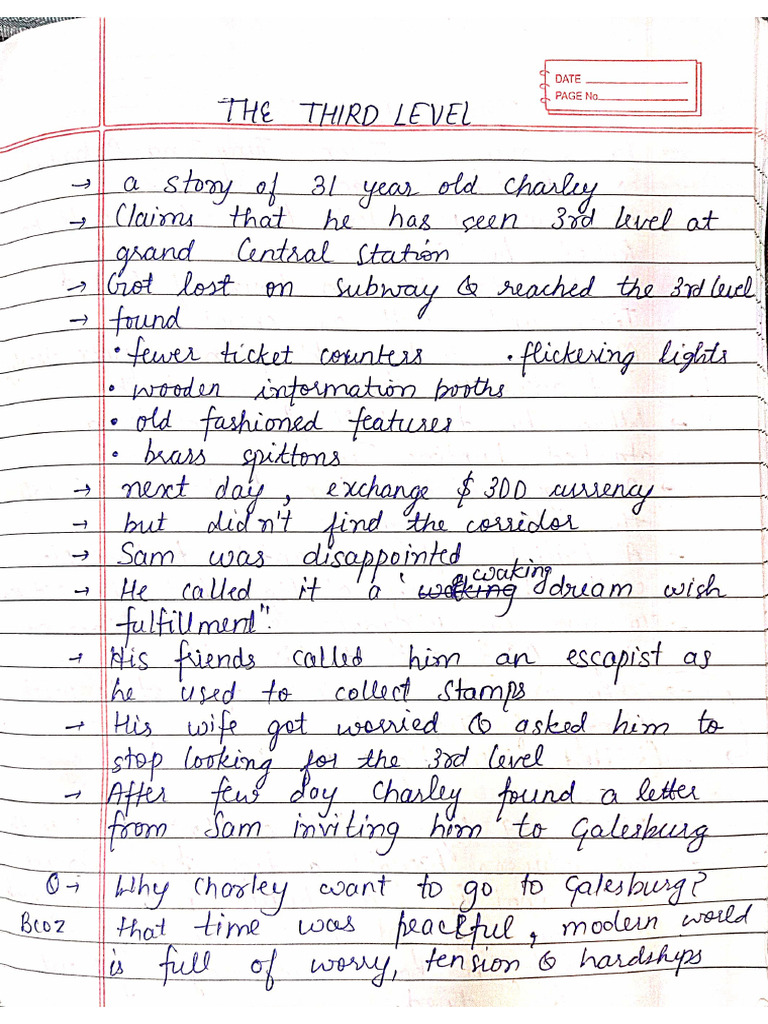 DATE
PAGE No.
THE THIRD LEVEL
→ a story of 31 year old Charley
→ Claims that he has seen 3rd level at
grand Central Station
→ Got lost on subway & reached the 3rd level
→ found
• fewer ticket counters • flickering lights
• wooden information booths
• old fashioned features
• brass spittons
→ next day, exchange $ 300 currency
→ but didn't find the corridor
→ Sam was disappointed
→ He called it a 'waking dream wish
fulfillment".
→ His friends called him an escapist as
he used to collect stamps
→ His wife got worried & asked him to
stop looking for the 3rd level
→ After few day Charley found a letter
from Sam inviting him to Galesburg
Q→ Why Charley want to go to Galesburg?
Bcoz that time was peaceful, modern world
is full of worry, tension & hardships